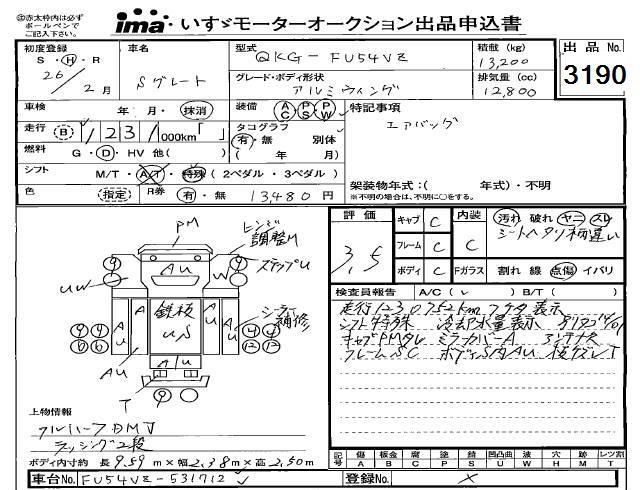 ㊟赤太枠内は必ず
ボールペンで
ご記入下さい。
ima・いすゞモーターオークション出品申込書
出品 No.
3190
初度登録
S・H・R
26/2月
車名
Sグレート
型式
QKG-FU54VZ
グレード・ボディ形状
アルミウィング
積載 (kg)
13,200
排気量 (cc)
12,800
車検 年・月・抹消
装備 AC PS PW
特記事項
エアバッグ
走行 B 1 231 000km「 」
タコグラフ
有・無 別体
( 年 月)
燃料 G・D・HV 他( )
シフト M/T・A/T・特殊 ( 2ペダル ・ 3ペダル )
色 指定 R券 有・無 13480円
架装物年式:( 年式)・不明
※不明の場合は、不明に○をする。
PM
ヒンジ
調整M
ステップU
AU
W
UW
鉄板
US
AU
AU
シーラー
補修
AU
T
上物情報
フルハーフDMJ
ラッシング2段
ボディ内寸約 長9.59m×幅2.38m×高2.50m
評価
3.5
キャブ C
フレーム C
ボディ C
内装
C
Fガラス
汚れ 破れ ヤニ スレ
シートヘタリ柄違い
割れ 線 点傷 イバリ
検査員報告 A/C( レ ) B/T( )
走行1230752km
シフト特殊 冷却水量表示
キャブPMタレ ミラーカバーA アンテナX
フレームSC ボディS内AU
記号 傷 A 板金 B 腐 C 塗 P 錆 S 凹凸曲 U 波 W 穴 H 跡 M レツ割 T
車台No. FU54VZ-531712
登録No. ×
ima